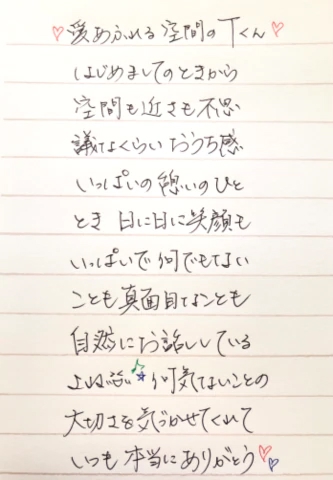 ♡愛あふれる空間のTくん♡
はじめましてのときから
空間も近さも不思
議なくらいおうち感
いっぱいの憩いのひと
とき 日に日に笑顔も
いっぱいで何でもない
ことも真面目なことも
自然にお話ししている
何気ないことの
大切さを気づかせてくれて
いつも本当にありがとう♡♡